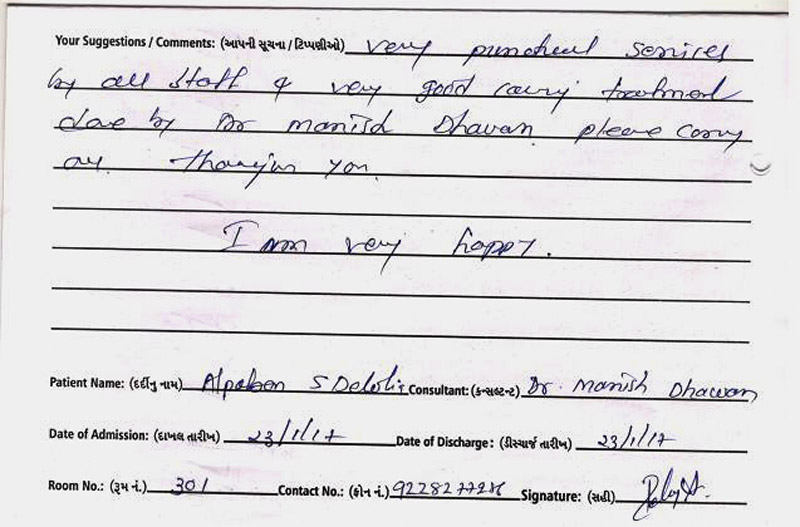 Your Suggestions / Comments: (આપની સૂચના / ટિપ્પણીઓ) very punctual services
by all staff & very good caring treatment
done by Dr Manish Dhavan please carry
on. Thanking you.
I am very happy.
Patient Name: (દર્દીનુ નામ) Alpaben S Consultant: (કન્સલ્ટન્ટ) Dr. Manish Dhawan
Date of Admission: (દાખલ તારીખ) 23/1/17 Date of Discharge: (ડીસ્ચાર્જ તારીખ) 23/1/17
Room No.: (રૂમ નં.) 301 Contact No.: (ફોન નં.) 9228277286 Signature: (સહી)